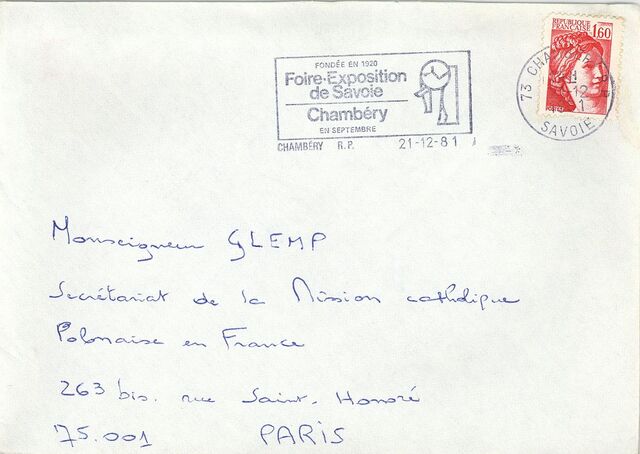 REPUBLIQUE
FRANCAISE
1,60
FONDÉE EN 1920
Foire-Exposition
de Savoie
Chambéry
EN SEPTEMBRE
CHAMBÉRY R.P. 21-12-81
73
SAVOIE
Monseigneur GLEMP
Secrétariat de la Mission catholique
Polonaise en France
263 bis. rue Saint-Honoré
75.001 PARIS